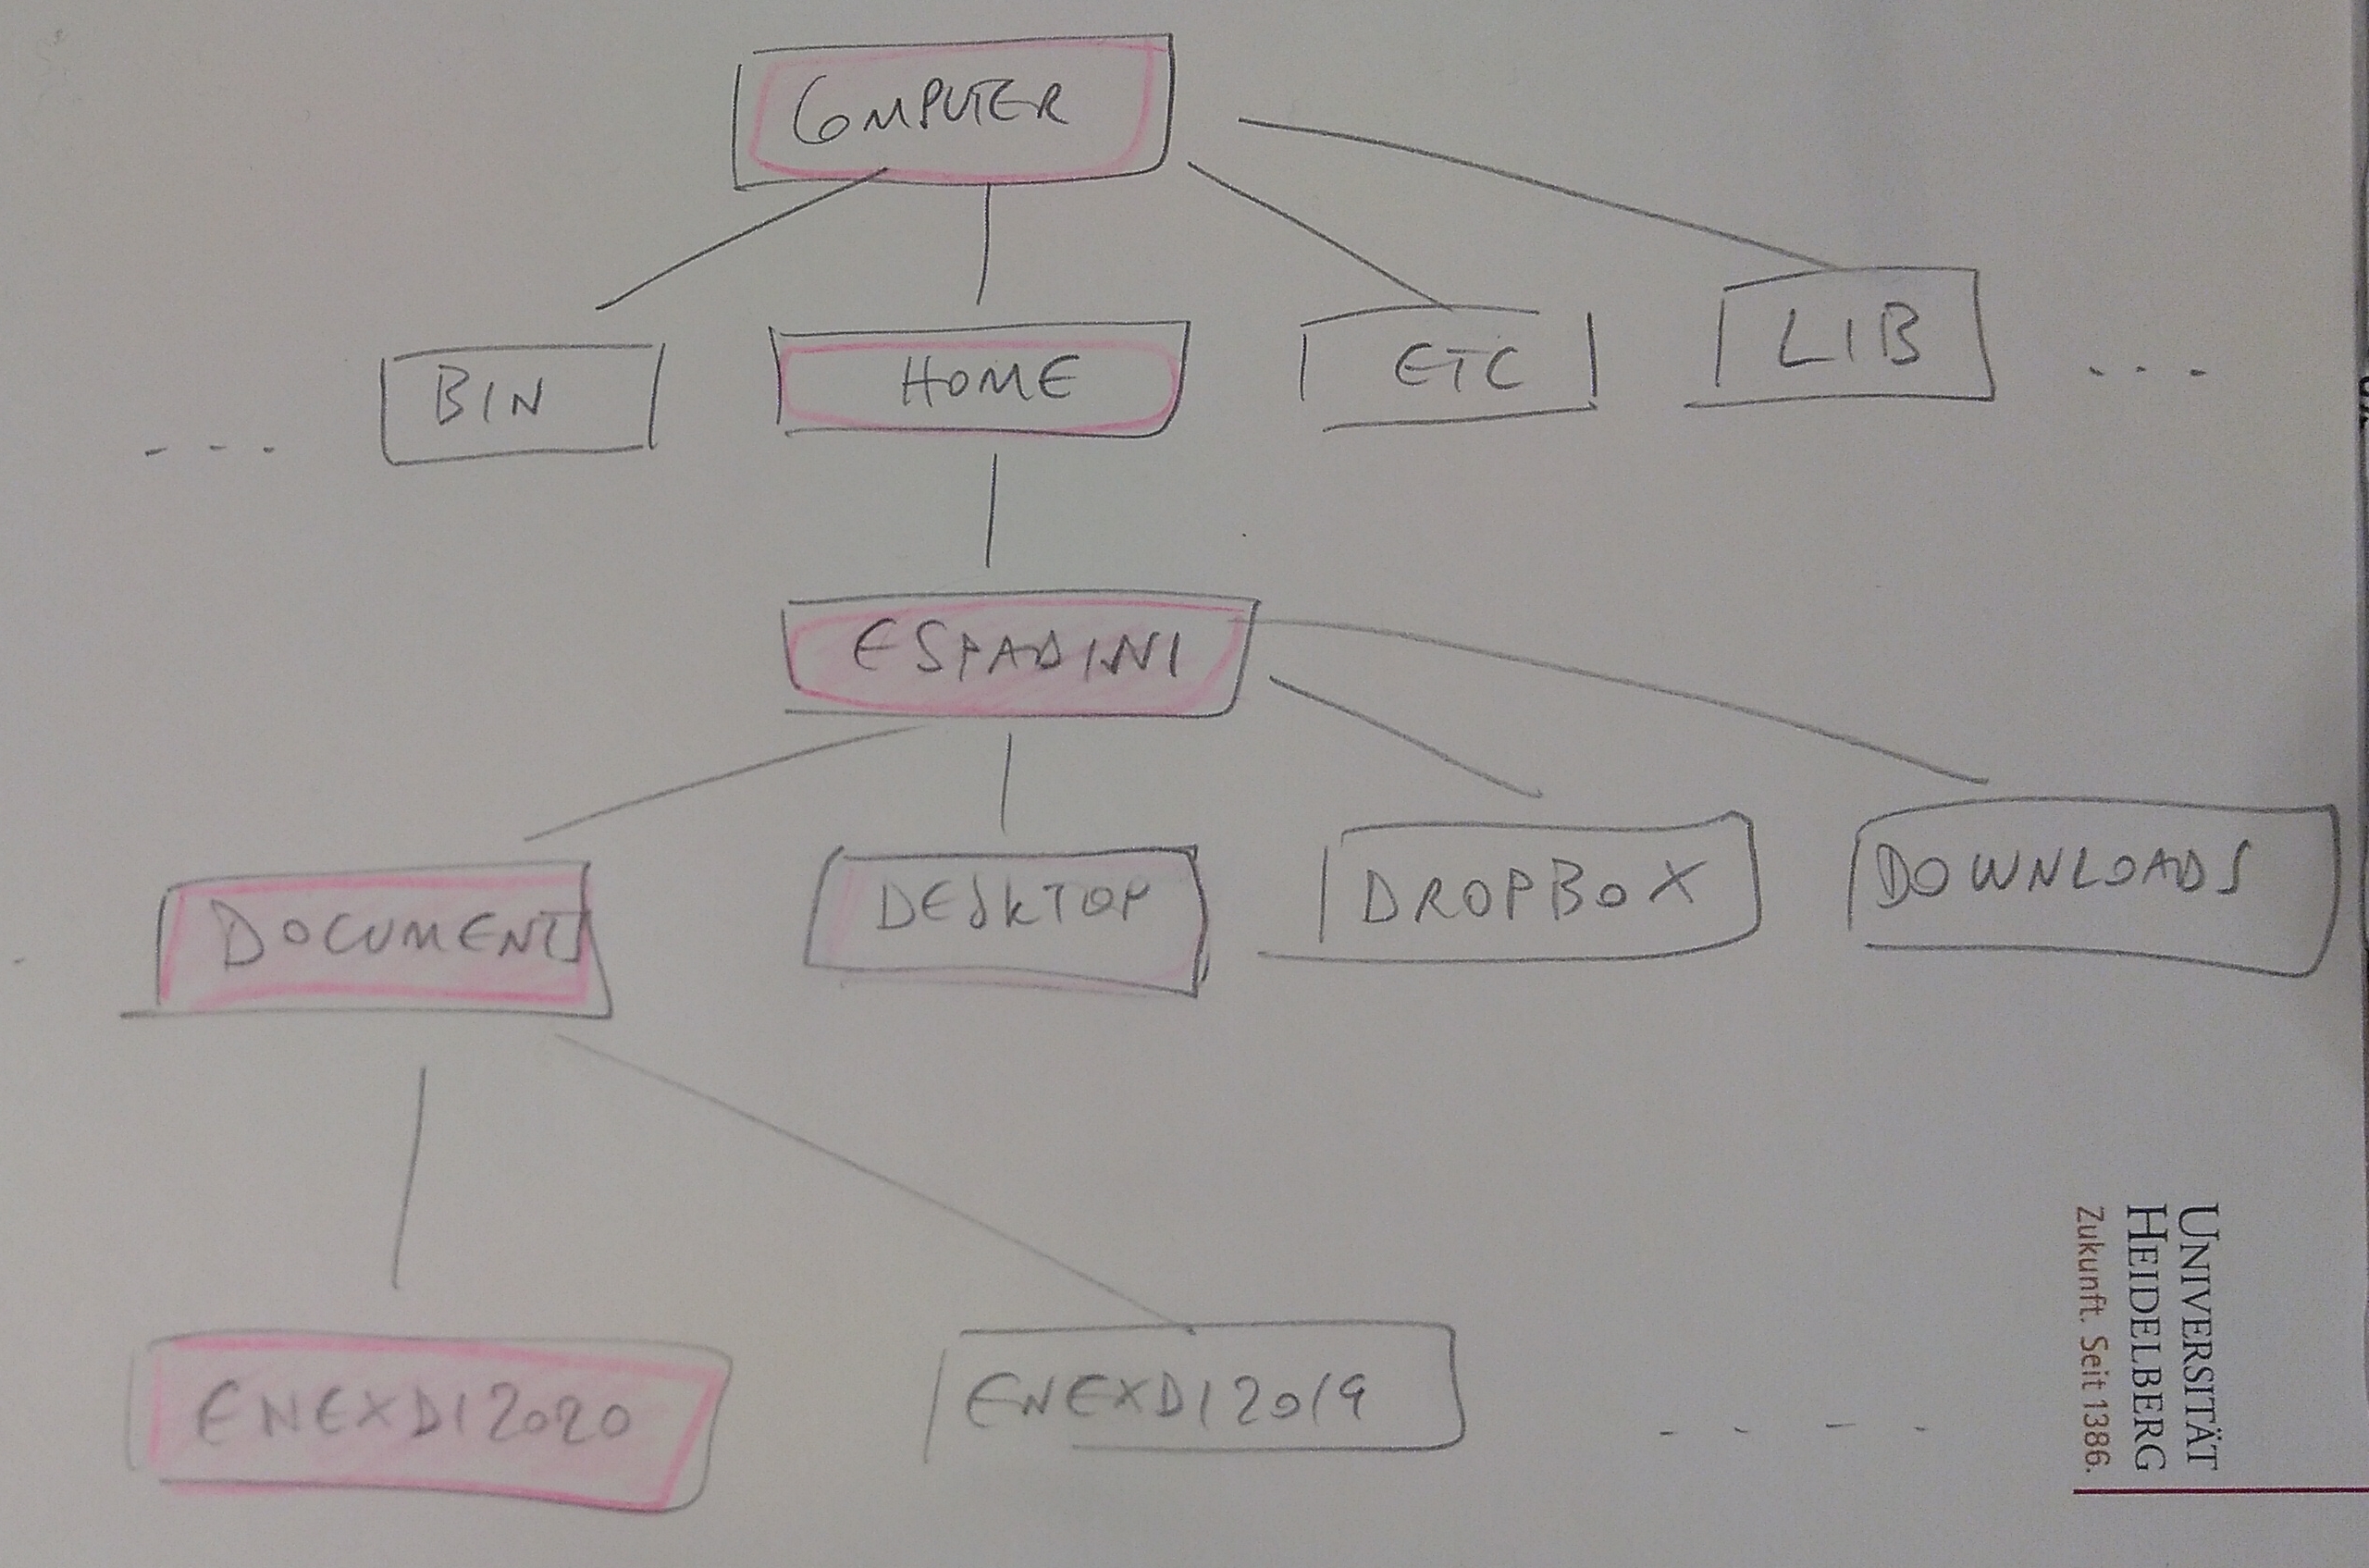 COMPUTER
BIN HOME ETC LIB ...
...
ESPADINI
DOCUMENTS DESKTOP DROPBOX DOWNLOADS
ENEXDI2020 ENEXDI2019 ....
UNIVERSITÄT
HEIDELBERG
Zukunft. Seit 1386.